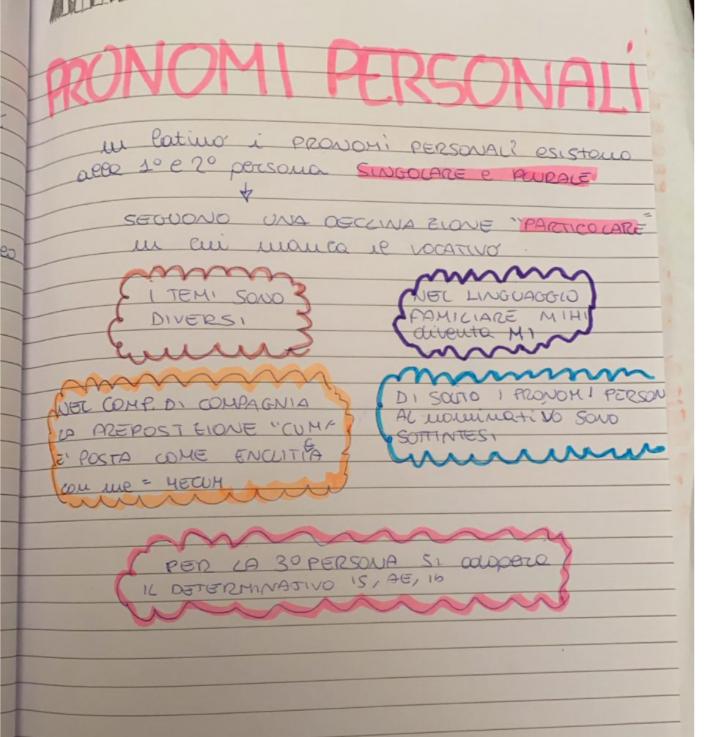 PRONOMI PERSONALI
in latino i PRONOMI PERSONALI esistono
alle 1° e 2° persona SINGOLARE e PLURALE
SEGUONO UNA DECLINAZIONE "PARTICOLARE"
in cui manca il VOCATIVO
I TEMI SONO
DIVERSI
NEL LINGUAGGIO
FAMILIARE MIHI
diventa MI
NEL COMP. DI COMPAGNIA
LA PREPOSIZIONE "CUM"
E' POSTA COME ENCLITICA
con me = MECUM
DI SOLITO I PRONOMI PERSON
AL nominatiVO SONO
SOTTINTESI
PER LA 3° PERSONA SI adopera
IL DETERMINATIVO IS, AE, ID